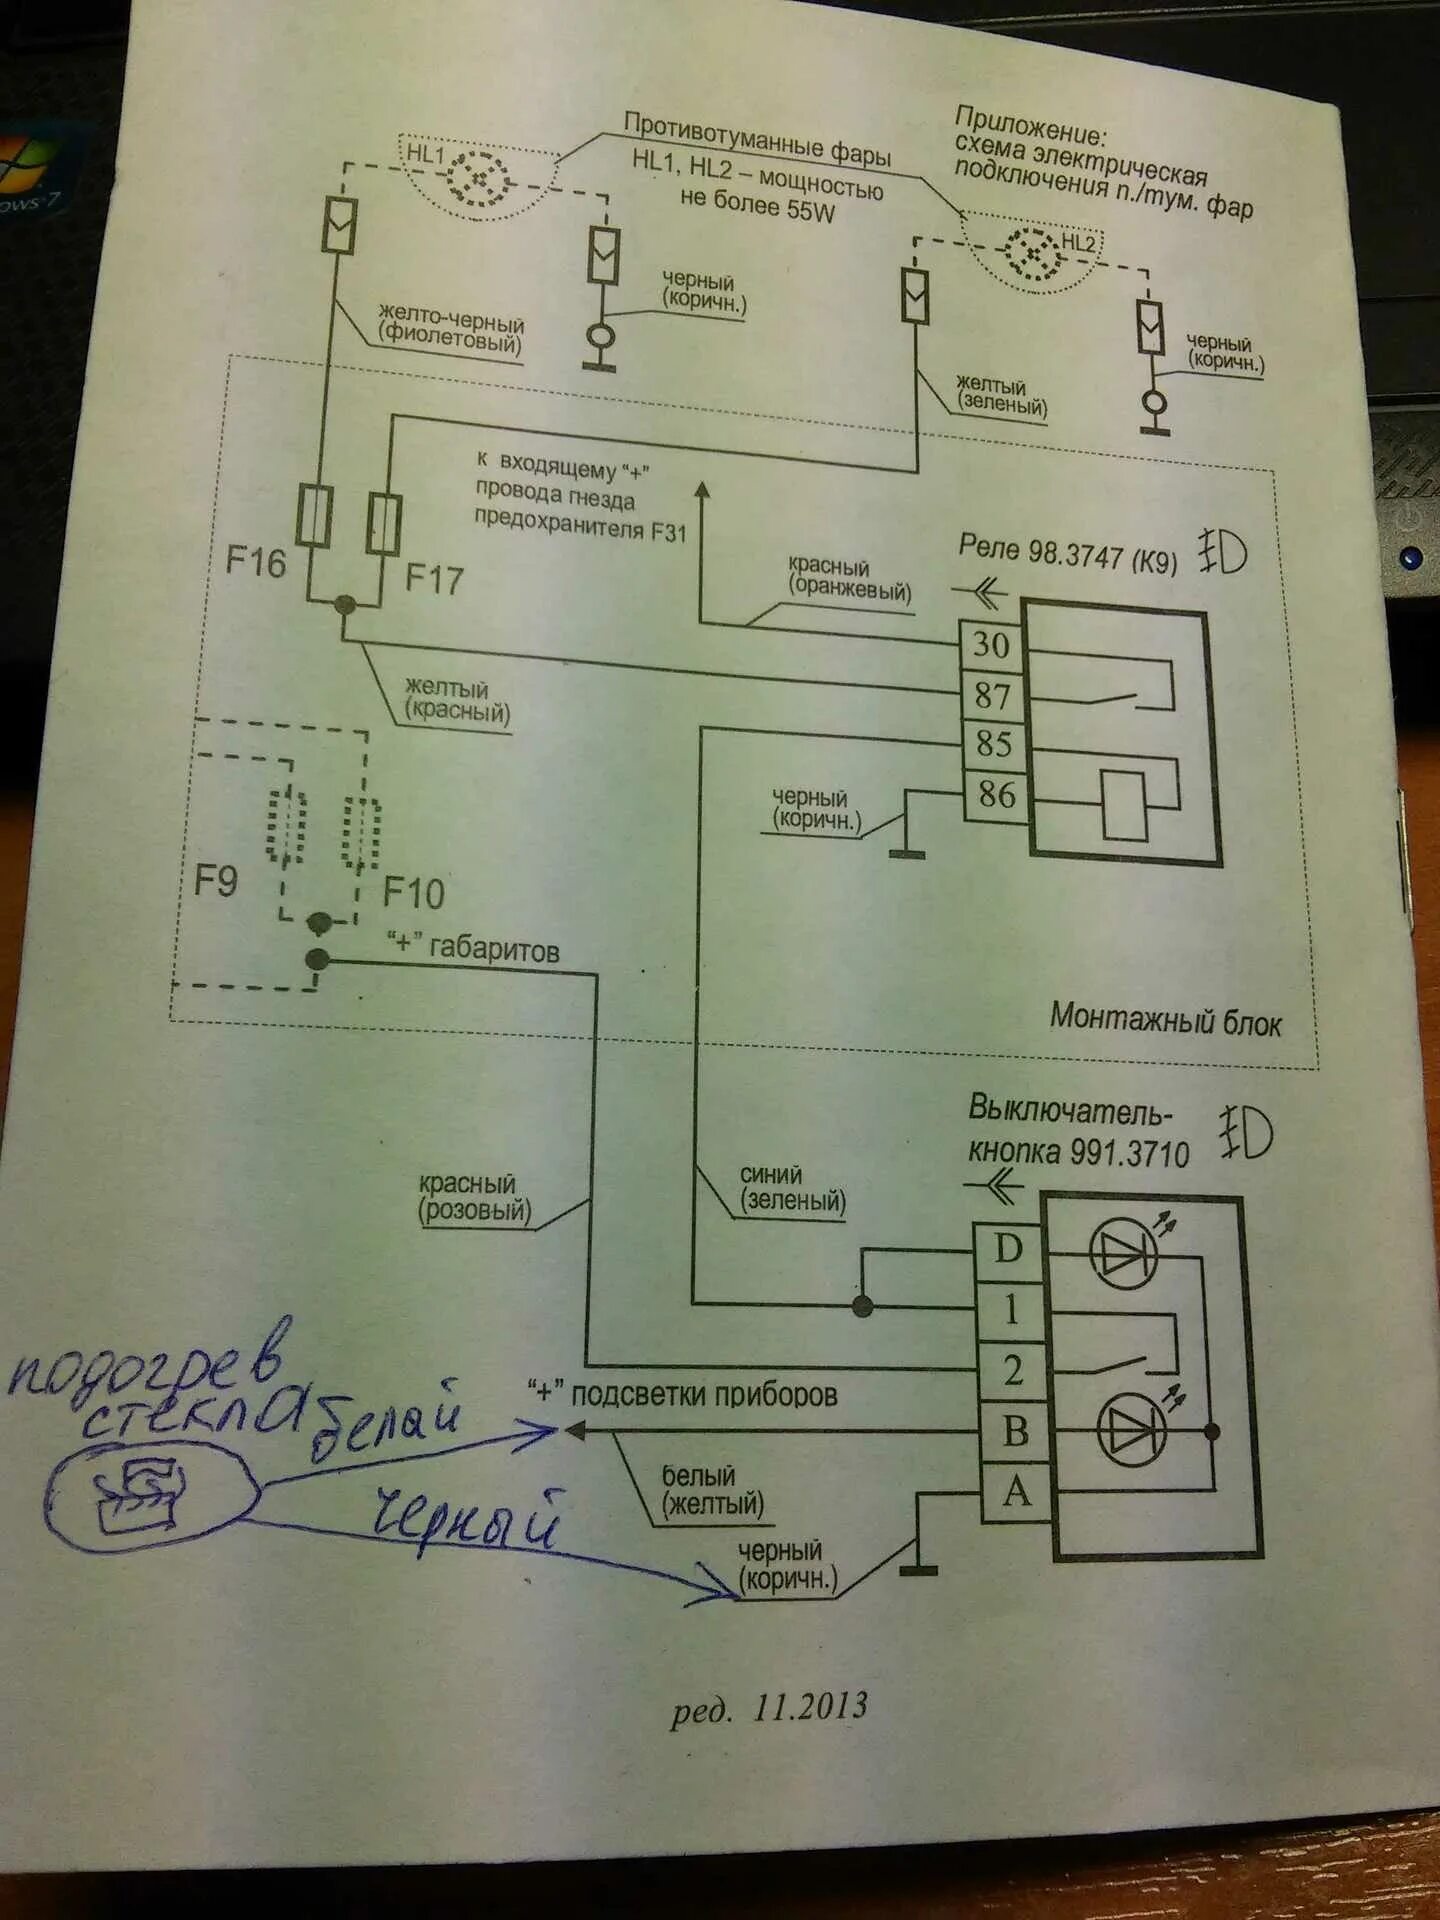 Приложение:
схема электрическая
подключения п./тум. фар
Противотуманные фары
HL1, HL2 – мощностью
не более 55W
HL1
HL2
черный
(коричн.)
желто-черный
(фиолетовый)
черный
(коричн.)
желтый
(зеленый)
к входящему "+"
провода гнезда
предохранителя F31
F16
F17
красный
(оранжевый)
Реле 98.3747 (К9)
30
87
85
86
желтый
(красный)
черный
(коричн.)
F9
F10
"+" габаритов
Монтажный блок
Выключатель-
кнопка 991.3710
красный
(розовый)
синий
(зеленый)
D
1
2
B
A
"+" подсветки приборов
белый
(желтый)
черный
(коричн.)
подогрев
стекла
белай
черный
ред. 11.2013
ows 7